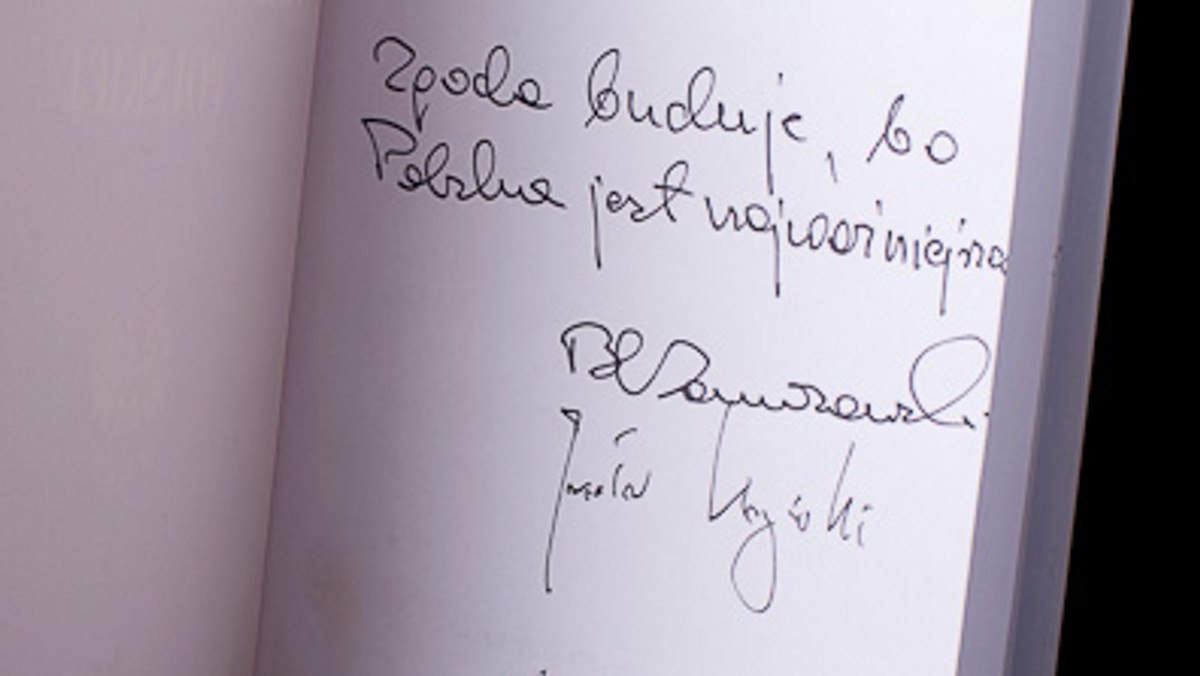 Zgoda buduje, bo
Polska jest najważniejsza
BKomorowski
Jarosław Kaczyński
POLSKIEJ